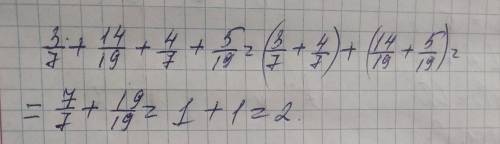 3/7 + 14/19 + 4/7 + 5/19 = (3/7 + 4/7) + (14/19 + 5/19) =
= 7/7 + 19/19 = 1 + 1 = 2.